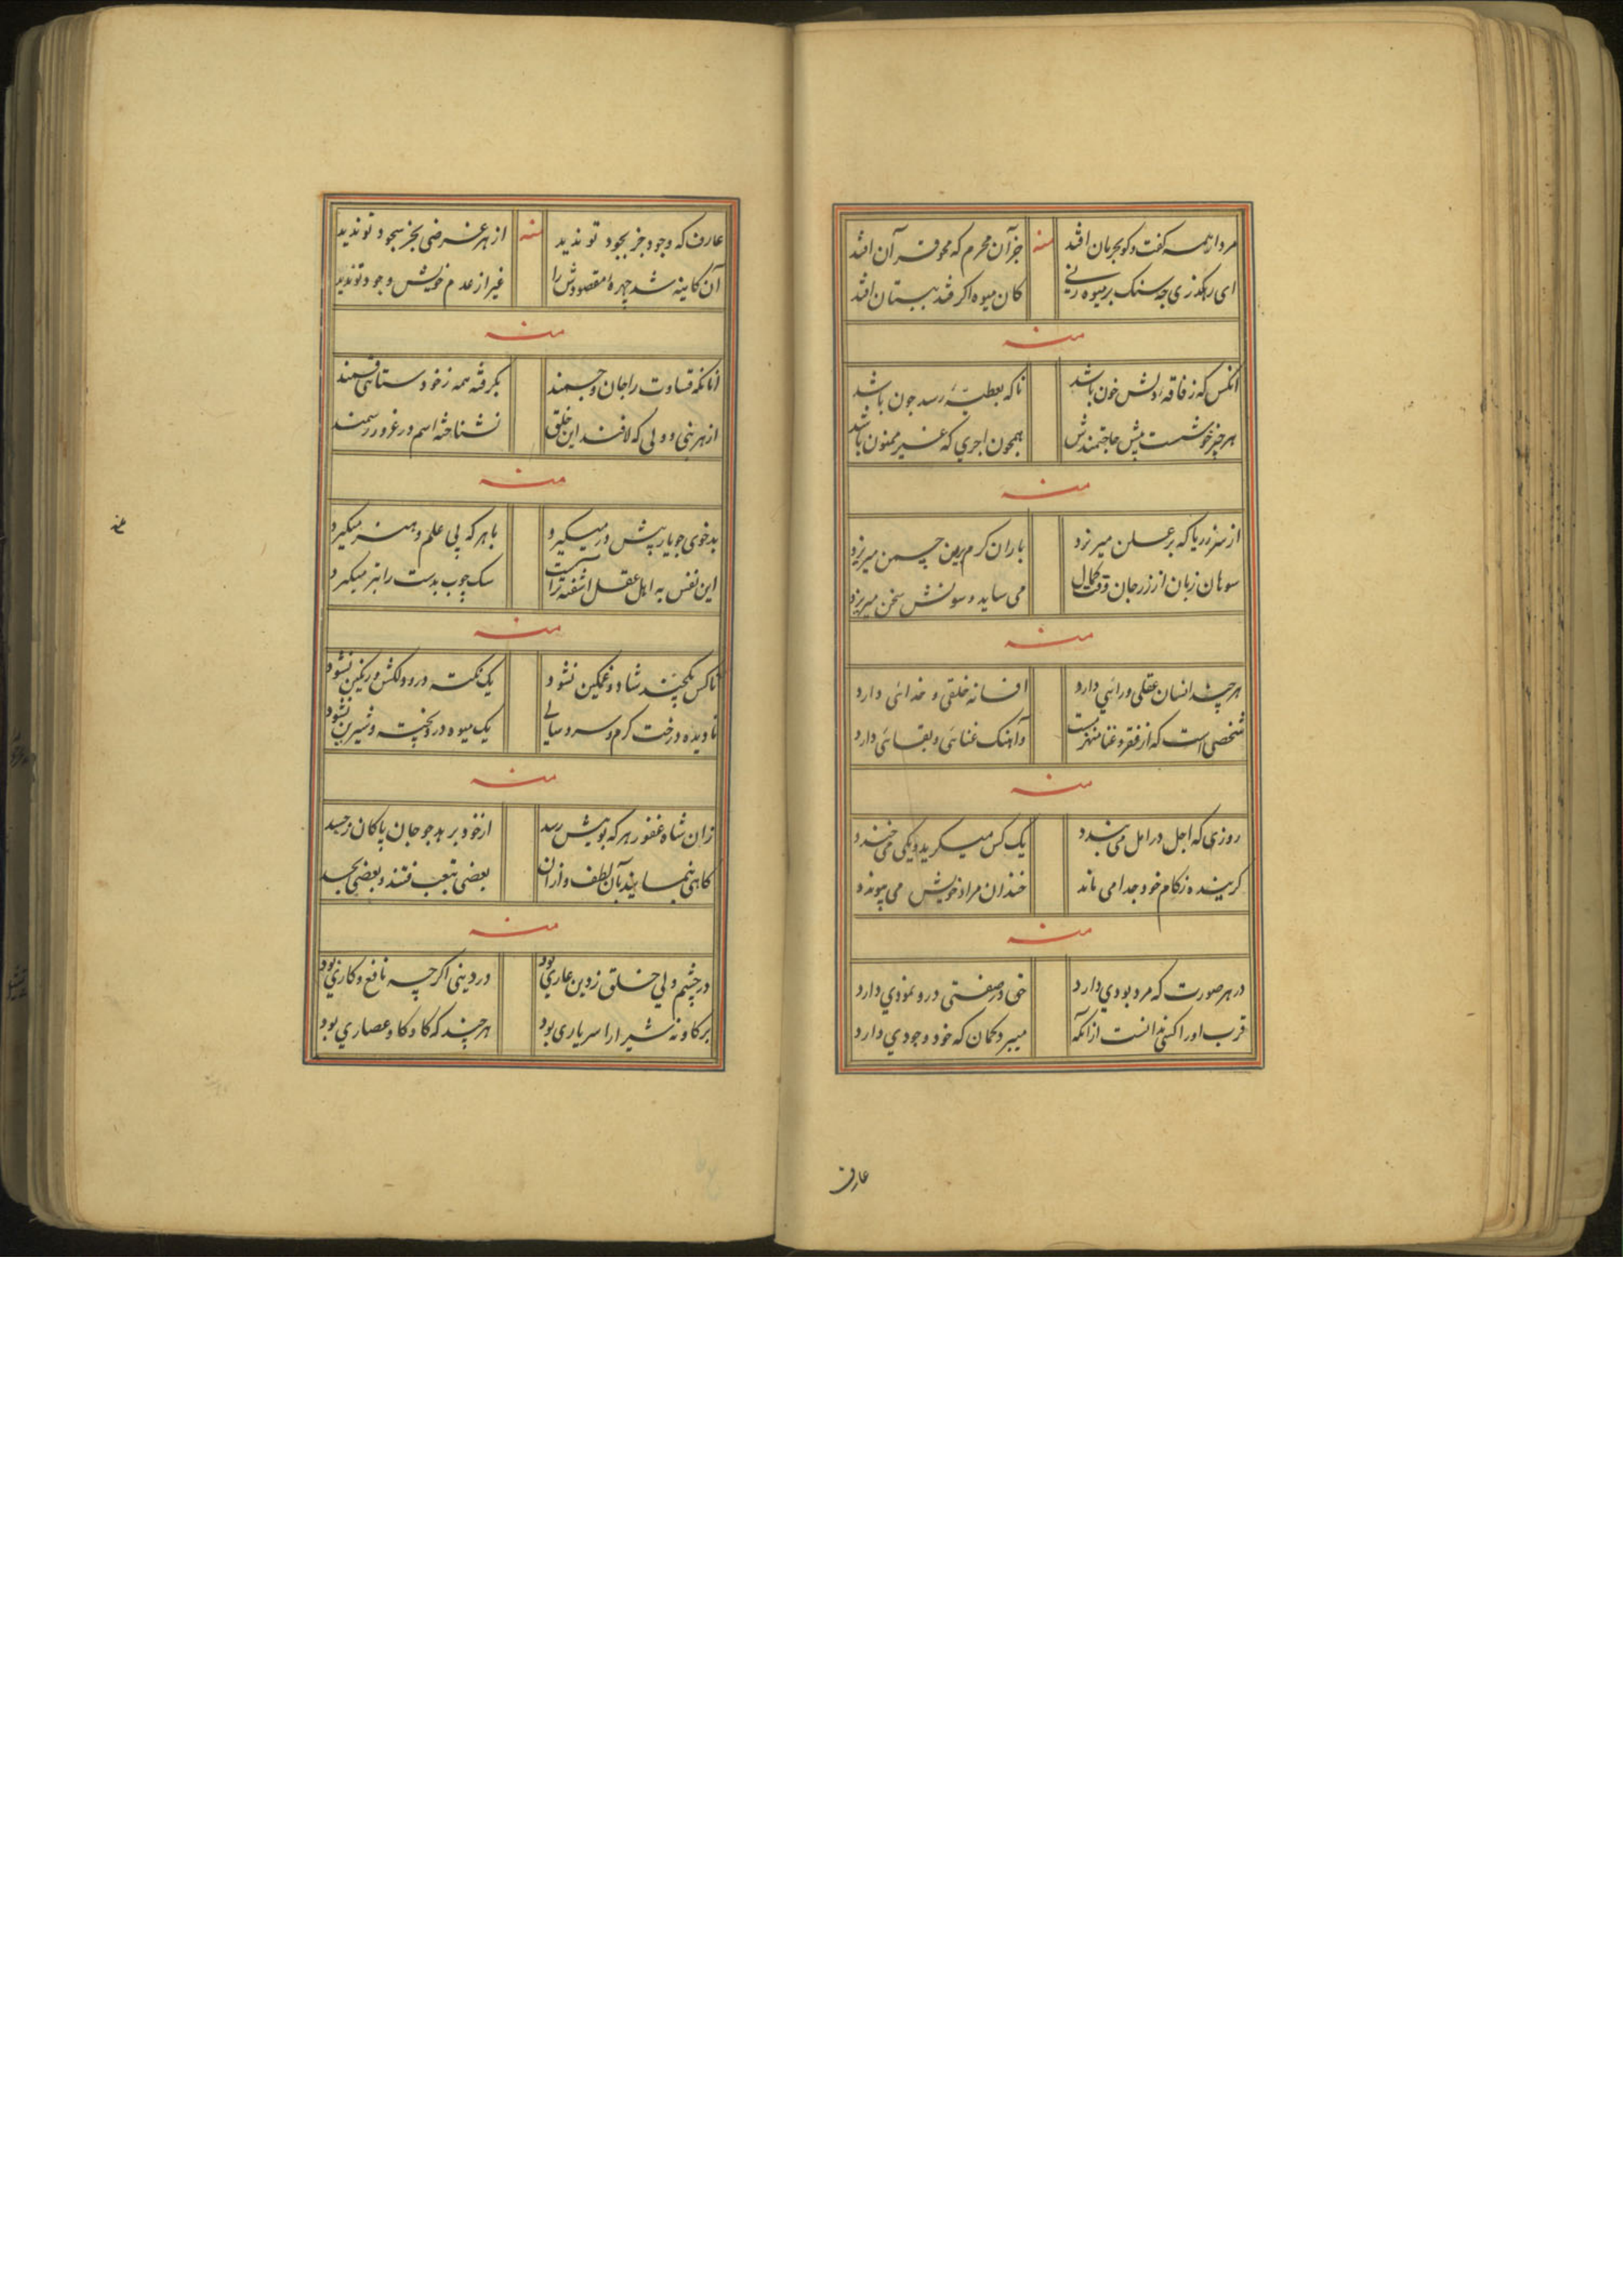 مرد از همه گفت و گو بحرمان افتد منه جز آن محرم که محو قرآن افتد
ای رهگذری چه سنگ بر میوه زنی کان میوه اگر فتد ببستان افتد
منه
آنکس که ز فاقه دلش خون باشد تا که بعطیه رسد چون باشد
هر چیز خوشست پیش حاجتمندش همچون اجری که غیر ممنون باشد
منه
از مغز زریا که بر علن میریزد باران کرم برین چمن میریزد
سوهان زبان از زر جان وقت کمال می ساید و سونش سخن میریزد
منه
هر چند انسان عقلی و رائی دارد افسانه خلقی و خدائی دارد
شخصی است که از فقر و غنا منهزمست و آهنگ غنائی و بقائی دارد
منه
روزی که اجل در امل می بندد یک کس میگرید و یکی می خندد
گرینده ز کام خود جدا می ماند خندان مراد خویش می پیوندد
منه
در هر صورت که مرد بودی دارد حق در صفتی درو نمودی دارد
قرب او را کسی ندانست از آنکه میبرد گمان که خود وجودی دارد
عارف
عارف که وجود جز بجود تو ندید منه از هر غرضی بجز سجود تو ندید
آن کاینه شد چهره مقصودش را غیر از عدم خویش وجود تو ندید
منه
آنانکه قساوت را جان و جسمند بگرفته همه ز خودستائی قسمند
از هر نبی و ولی که لافند این خلق نشناخته اسم در غرور رسمند
منه
بدخوی چو یار پیش در میگیرد با هر که پی علم و هنر میگیرد
این نفس به اهل عقل آشفته تراست سگ چوب بدست را بتر میگیرد
منه
ناکس بکه چند شاد و غمگین نشود یک نکته درو دلکش و رنگین نشود
نادیده درخت گرم و سرد سالی یک میوه درو پخته و شیرین نشود
منه
زان شاه غفور هر که بویش رسد از خود برهد چو جان پاکان ز جسد
گاهی بنمایند بآن لطف و از آن بعضی بتعب فتند و بعضی بحسد
منه
در چشم ولی خلق ز دین عاری بود در دینی اگرچه نافع و کاری بود
بر گاو نه شیر را سر یاری بود هر چند که گاو گاو عصاری بود